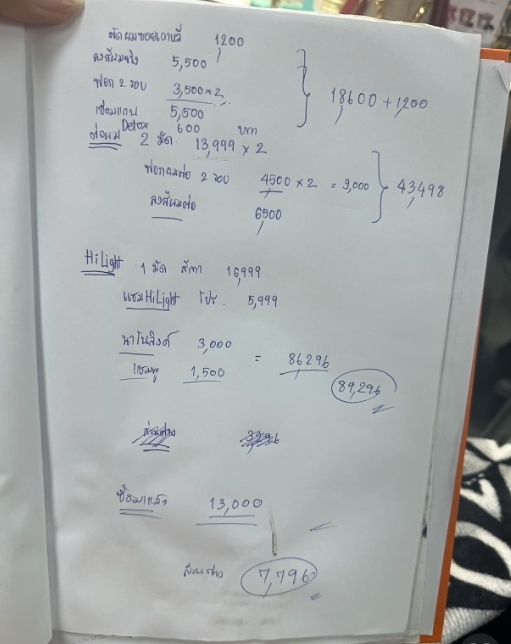 ตัดผมซอยเกาหลี 1200
ลงสีผมจริง 5,500
ฟอก 2 รอบ 3,500x2
เชื่อมแกน 5,500
18600 + 1,200
Detox 600 บาท
ต่อผม 2 มัด 13,999 x 2
ฟอกผมต่อ 2 รอบ 4500 x 2 = 9,000
43498
ลงสีผมต่อ 6500
HiLight 1 มัด สีเทา 16,999
แซม HiLight โปร. 5,999
นาโนลิงค์ 3,000
= 86296
แชมพู 1,500
89,296
ซื้อมาแล้ว 13,000
ส่วนต่าง 7,796